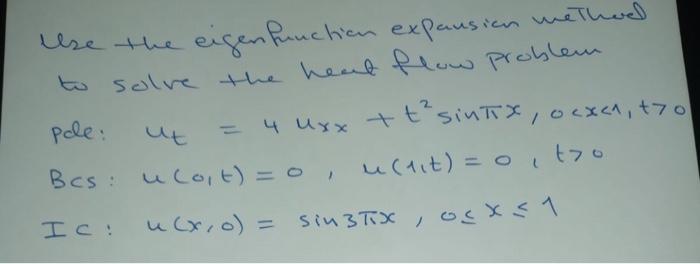 Use the eigenfunction expansion method
to solve the heat flow problem
pde: u_t = 4 u_xx + t² sin πx, 0<x<1, t>0
BCs: u(0,t) = 0, u(1,t) = 0, t>0
IC: u(x,0) = sin 3πx, 0≤x≤1